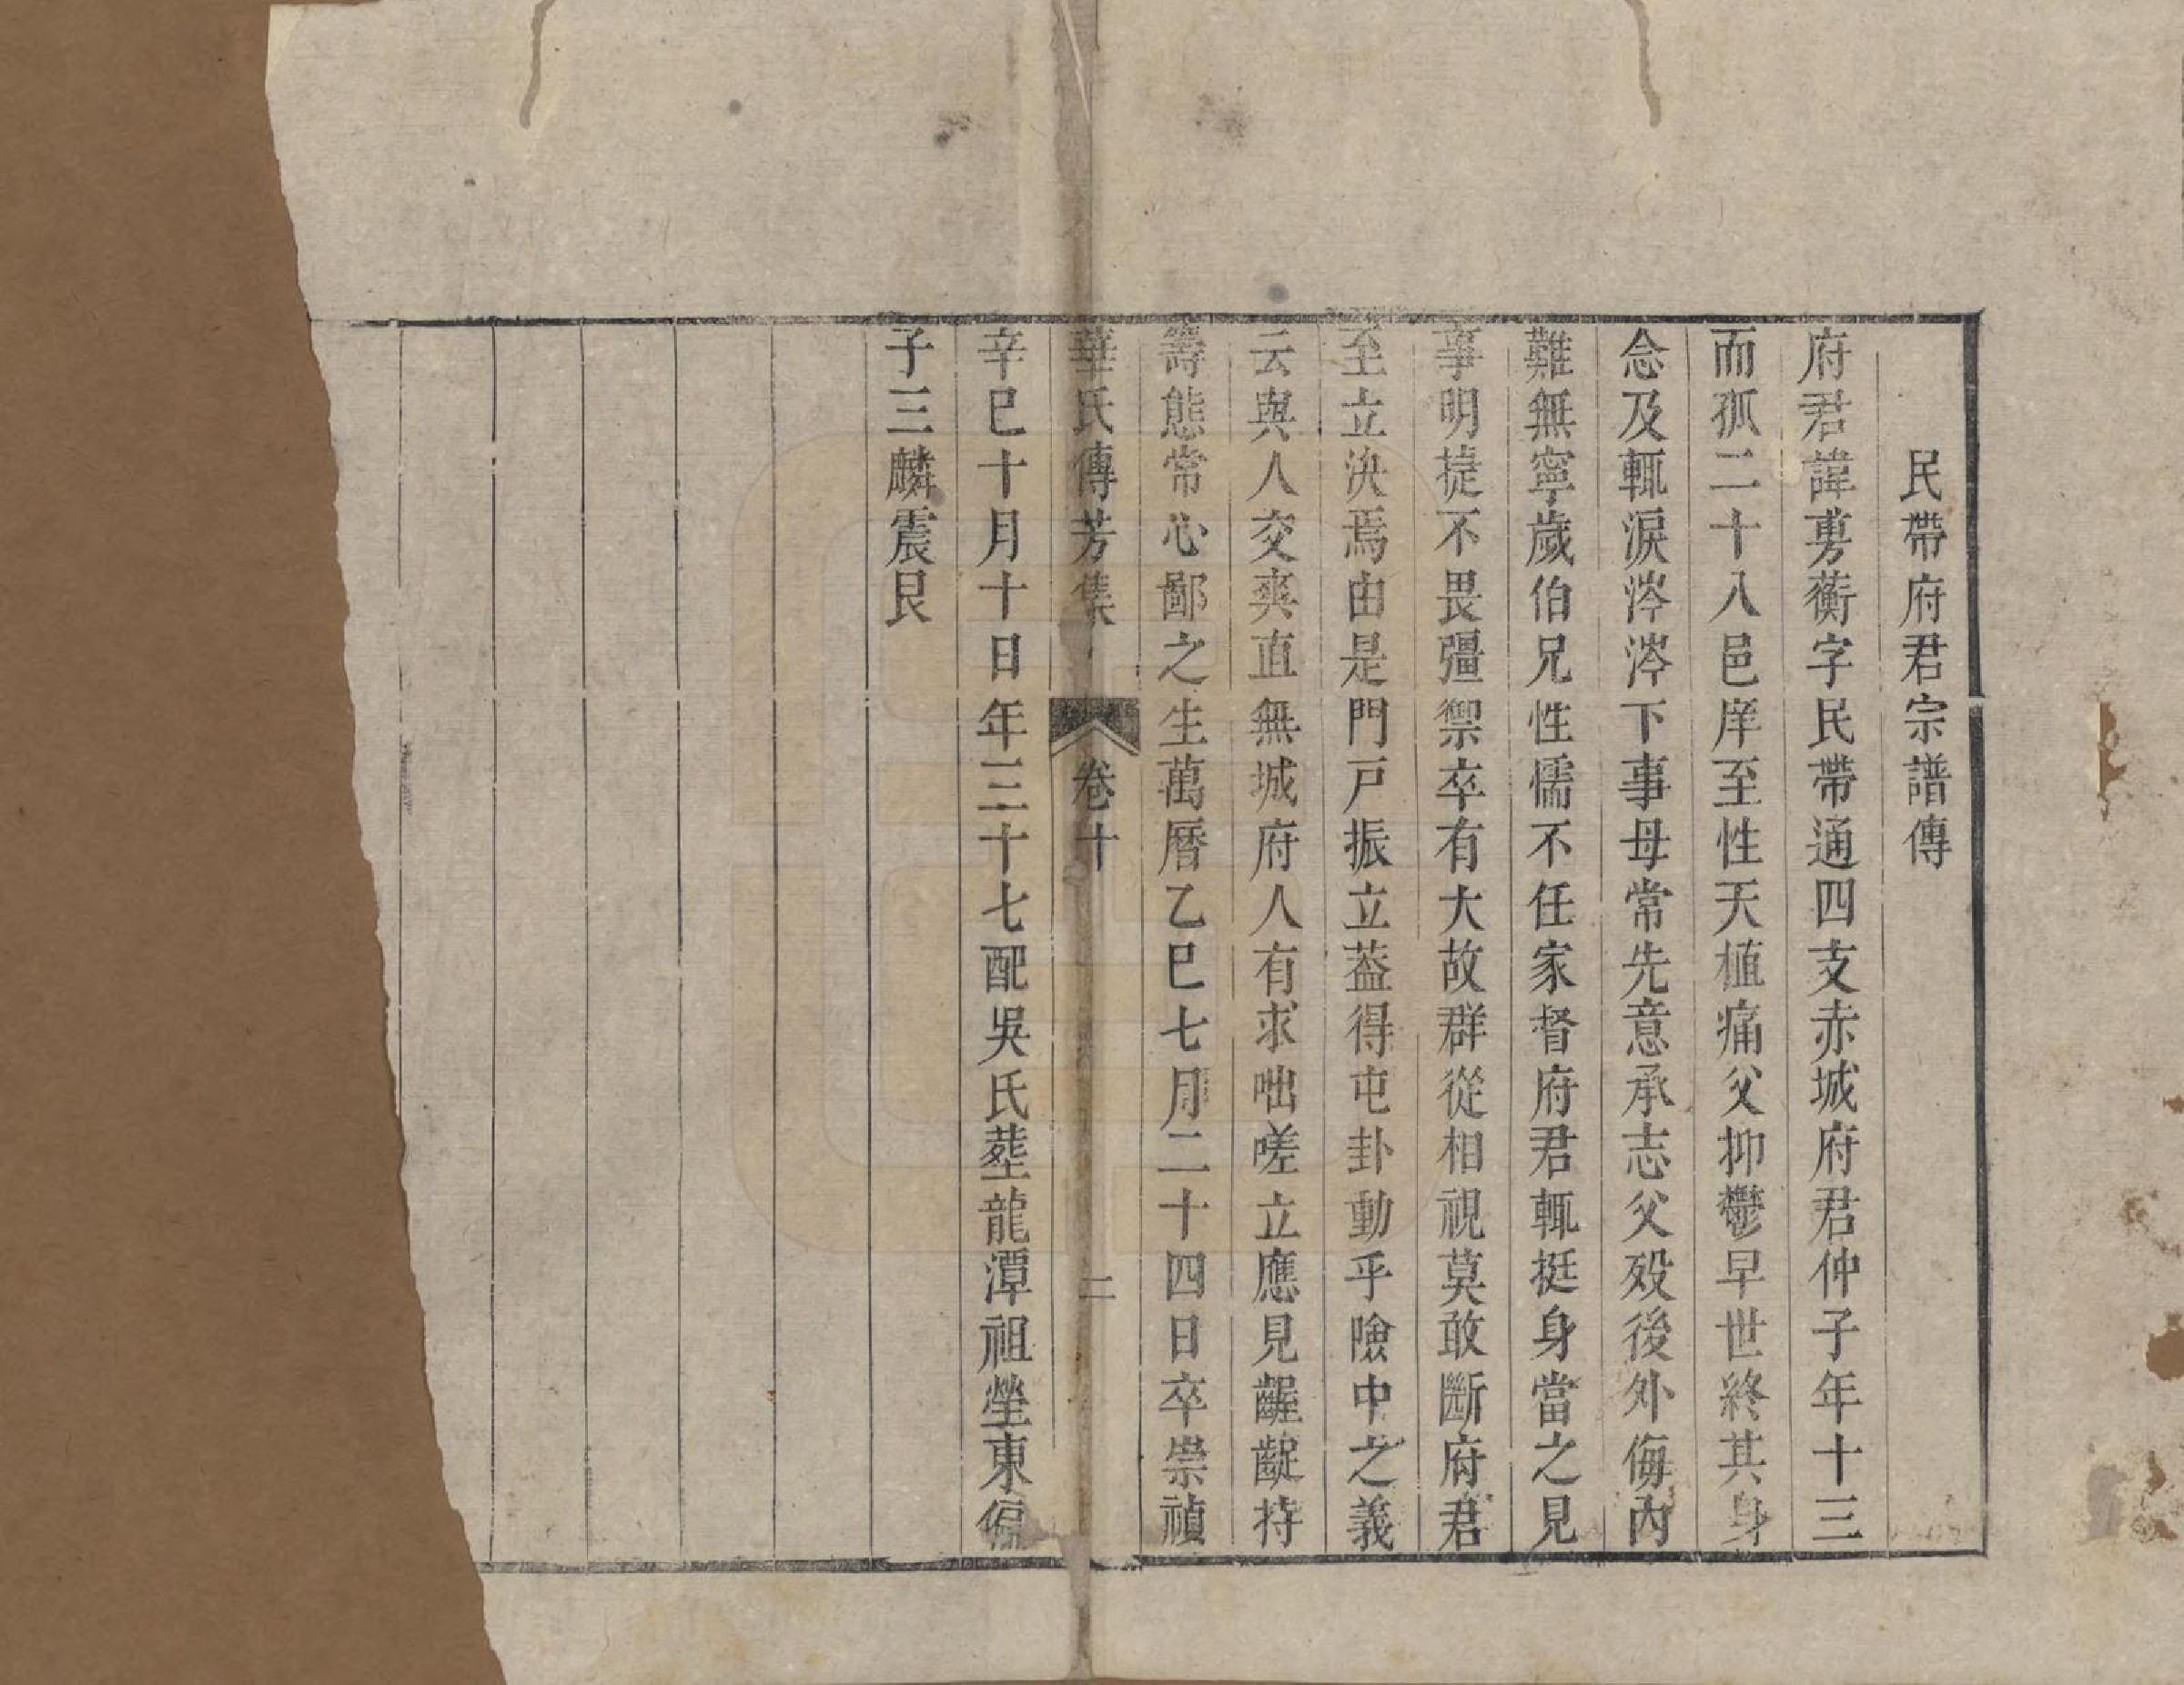 民帶府君宗譜傳
府君諱蒡蘅字民帶通四支赤城府君仲子年十三
而孤二十八邑庠至性天植痛父抑鬱早世終其身
念及輒淚涔涔下事母常先意承志父歿後外侮內
難無寧歲伯兄性懦不任家督府君輒挺身當之見
事明㨗不畏彊禦卒有大故群從相視莫敢斷府君
至立決焉由是門戸振立葢得屯卦動乎險中之義
云與人交爽直無城府人有求咄嗟立應見齷齪持
籌態常心鄙之生萬曆乙巳七月二十四日卒崇禎
華氏傳芳集 卷十 二
辛巳十月十日年三十七配吳氏塟龍潭祖塋東偏
子三麟震艮